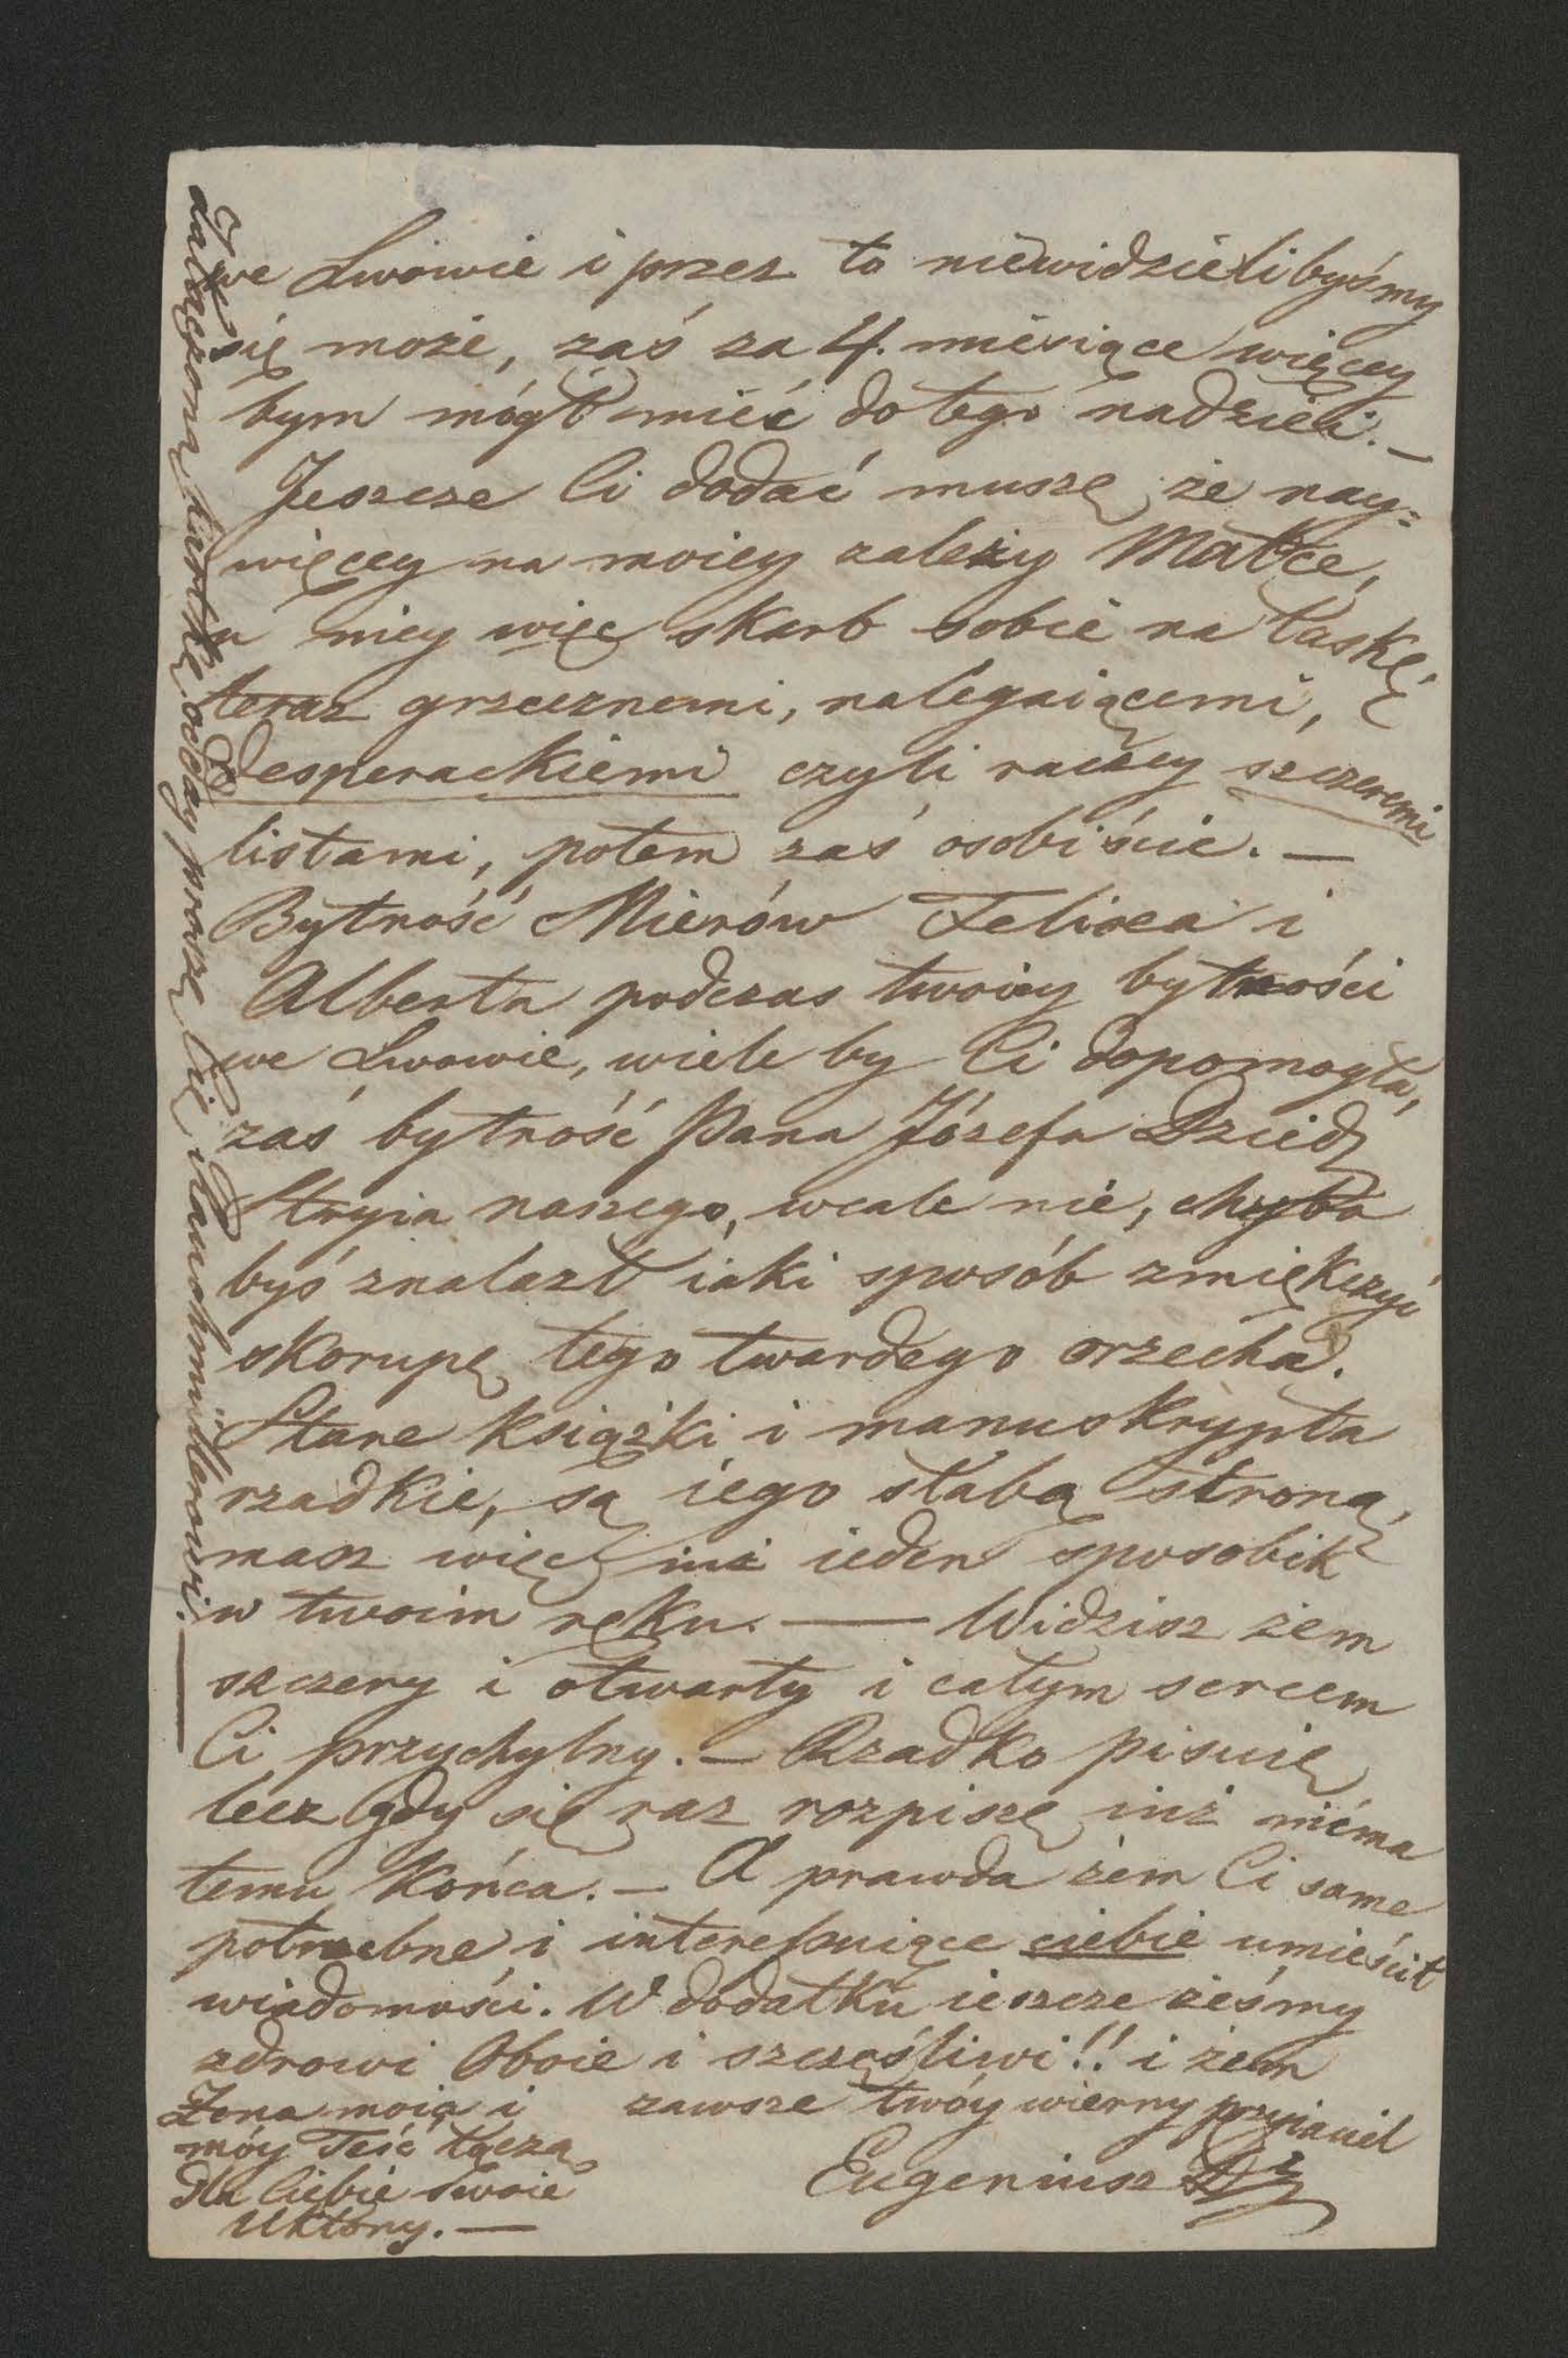 we Lwowie i przez to niewidzielibyśmy
się może, zaś za 4. miesiące więcey
bym mógł mieć do tego nadzieii. —
Jeszcze Ci dodać muszę, że nay=
więcey na moiey zależy Matce,
u niey więc skarb sobie na łaskę,
teraz grzecznemi, nalegaiącemi,
desperackiemi czyli raczey szczeremi
listami, potem zaś osobiście. —
Bytność Mierów Felixa i
Alberta podczas twoiey bytności
we Lwowie, wiele by Ci dopomogła,
zaś bytność Pana Józefa Dzied
Stryia naszego, wcale nie, chyba
byś znalazł iaki sposób zmiękczyć
skorupę tego twardego orzecha.
Stare książki i manuskrypta
rzadkie, są iego słabą stroną,
masz więc iuż ieden sposobik
w twoim ręku. — Widzisz żem
szczery i otwarty i całym sercem
Ci przychylny. — Rzadko pisuię
lecz gdy się raz rozpiszę iuż niéma
temu końca. — A prawda żem Ci same
potrzebne i interessuiące ciebie umieścił
wiadomości. W dodatku ieszcze żeśmy
zdrowi Oboie i szczęśliwi!! i żem
zawsze twóy wierny przyiaciel
Eugeniusz Dz
Żona moia i
móy Teść łączą
dla Ciebie swoie
Ukłony. —
załączoną kartkę odday proszę Cię